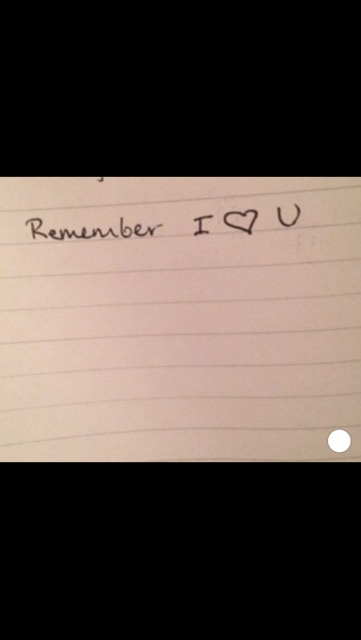 Remember I ♡ U